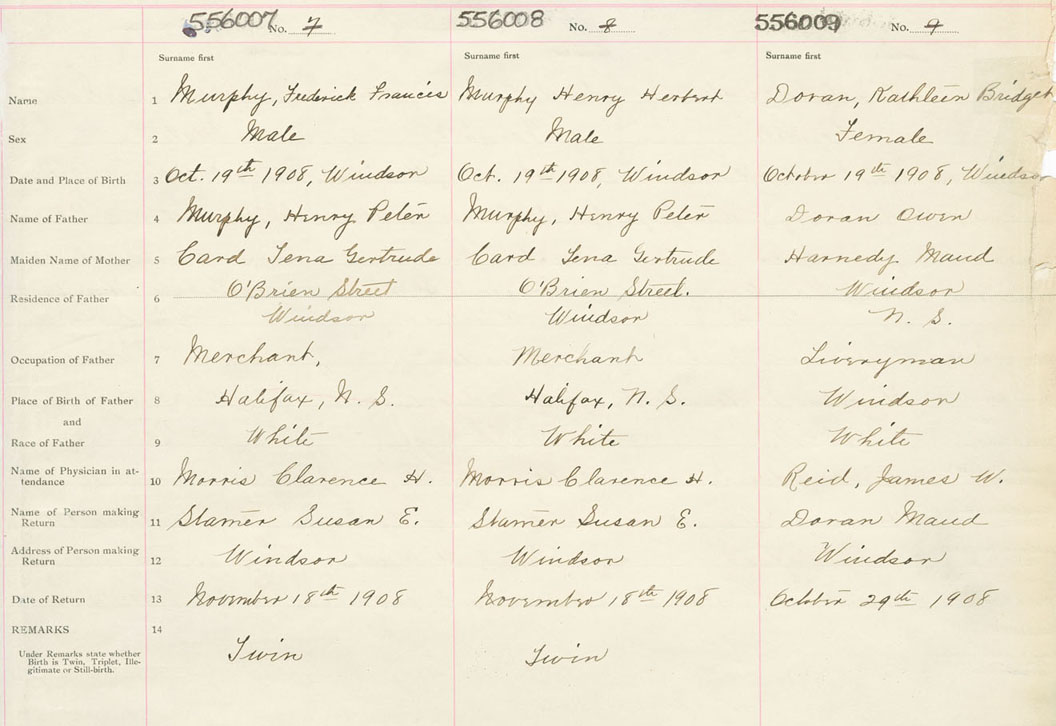 556007 No. 7 556008 No. 8 556009 No. 9
Surname first Surname first Surname first
Name 1 Murphy, Frederick Francis Murphy Henry Herbert Doran, Kathleen Bridget
Sex 2 Male Male Female
Date and Place of Birth 3 Oct. 19th 1908, Windsor Oct. 19th 1908, Windsor October 19th 1908, Windsor
Name of Father 4 Murphy, Henry Peter Murphy, Henry Peter Doran Owen
Maiden Name of Mother 5 Card Lena Gertrude Card Lena Gertrude Harnedy Maud
Residence of Father 6 O'Brien Street O'Brien Street. Windsor
Windsor Windsor N. S.
Occupation of Father 7 Merchant, Merchant Liveryman
Place of Birth of Father 8 Halifax, N. S. Halifax, N. S. Windsor
and
Race of Father 9 White White White
Name of Physician in at-
tendance 10 Morris Clarence H. Morris Clarence H. Reid, James W.
Name of Person making
Return 11 Stamer Susan E. Stamer Susan E. Doran Maud
Address of Person making
Return 12 Windsor Windsor Windsor
Date of Return 13 November 18th 1908 November 18th 1908 October 29th 1908
REMARKS 14
Under Remarks state whether
Birth is Twin, Triplet, Ille-
gitimate or Still-birth.
Twin Twin